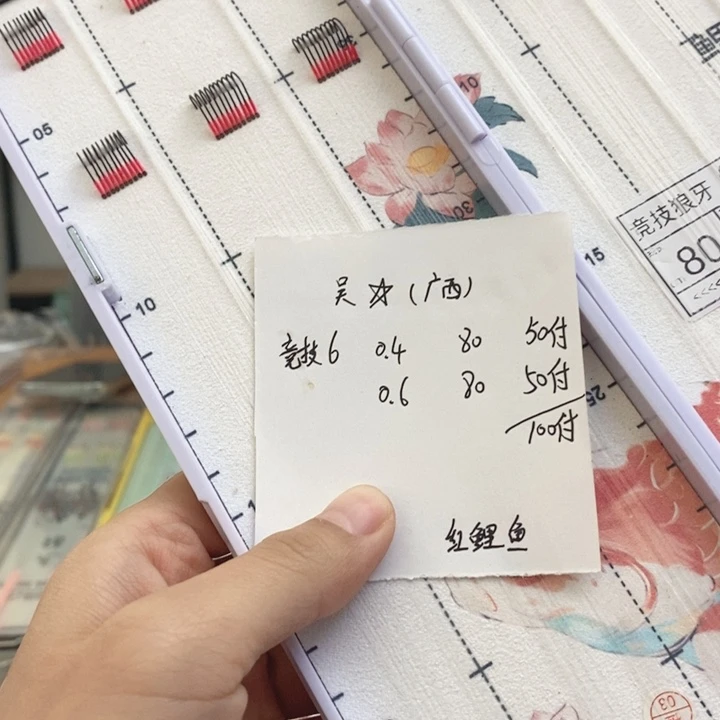 05
10
10
30
15
25
竞技狼牙
80
吴☆(广西)
竞技6 0.4 80 50付
0.6 80 50付
100付
红鲤鱼
03